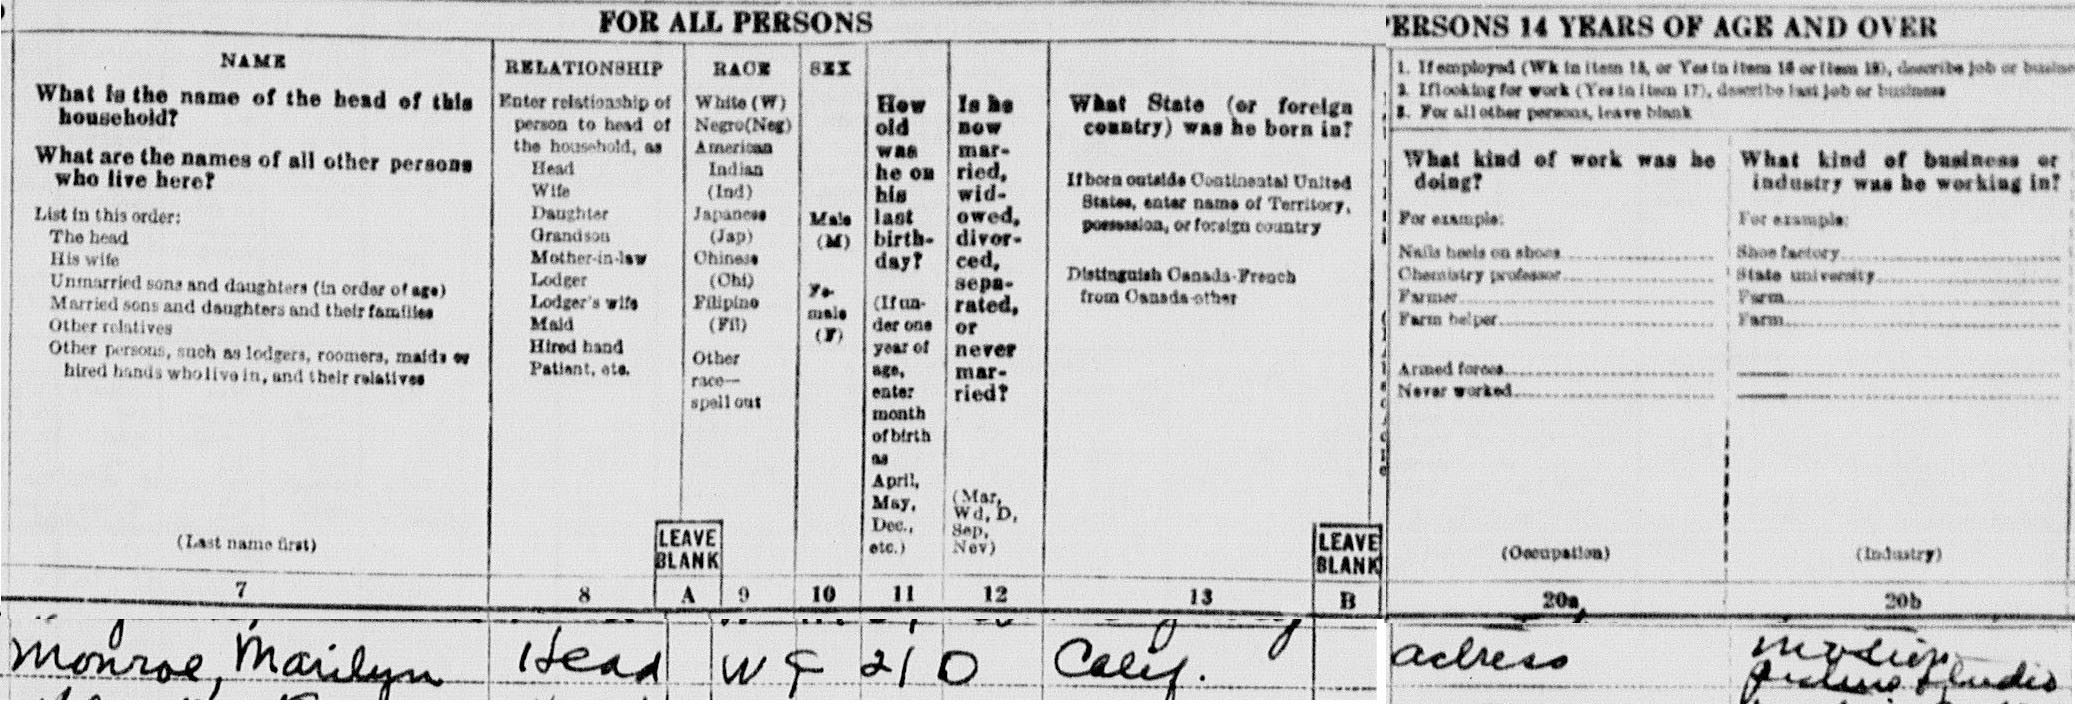 FOR ALL PERSONS
NAME
What is the name of the head of this
household?
What are the names of all other persons
who live here?
List in this order:
The head
His wife
Unmarried sons and daughters (in order of age)
Married sons and daughters and their families
Other relatives
Other persons, such as lodgers, roomers, maids or
hired hands who live in, and their relatives
(Last name first)
7
RELATIONSHIP
Enter relationship of
person to head of
the household, as
Head
Wife
Daughter
Grandson
Mother-in-law
Lodger
Lodger's wife
Maid
Hired hand
Patient, etc.
8
LEAVE
BLANK
A
RACE
White (W)
Negro(Neg)
American
Indian
(Ind)
Japanese
(Jap)
Chinese
(Chi)
Filipino
(Fil)
Other
race—
spell out
9
SEX
Male
(M)
Fe-
male
(F)
10
How
old
was
he on
his
last
birth-
day?
(If un-
der one
year of
age,
enter
month
of birth
as
April,
May,
Dec.,
etc.)
11
Is he
now
mar-
ried,
wid-
owed,
divor-
ced,
sepa-
rated,
or
never
mar-
ried?
(Mar,
Wd, D,
Sep,
Nev)
12
What State (or foreign
country) was he born in?
If born outside Continental United
States, enter name of Territory,
possession, or foreign country
Distinguish Canada-French
from Canada-other
13
LEAVE
BLANK
B
PERSONS 14 YEARS OF AGE AND OVER
1. If employed (Wk in item 15, or Yes in item 16 or item 18), describe job or busine
2. If looking for work (Yes in item 17), describe last job or business
3. For all other persons, leave blank
What kind of work was he
doing?
For example:
Nails heels on shoes
Chemistry professor
Farmer
Farm helper
Armed forces
Never worked
(Occupation)
20a
What kind of business or
industry was he working in?
For example:
Shoe factory
State university
Farm
Farm
(Industry)
20b
Monroe, Marilyn Head W F 21 D Calif. actress motion
picture studio